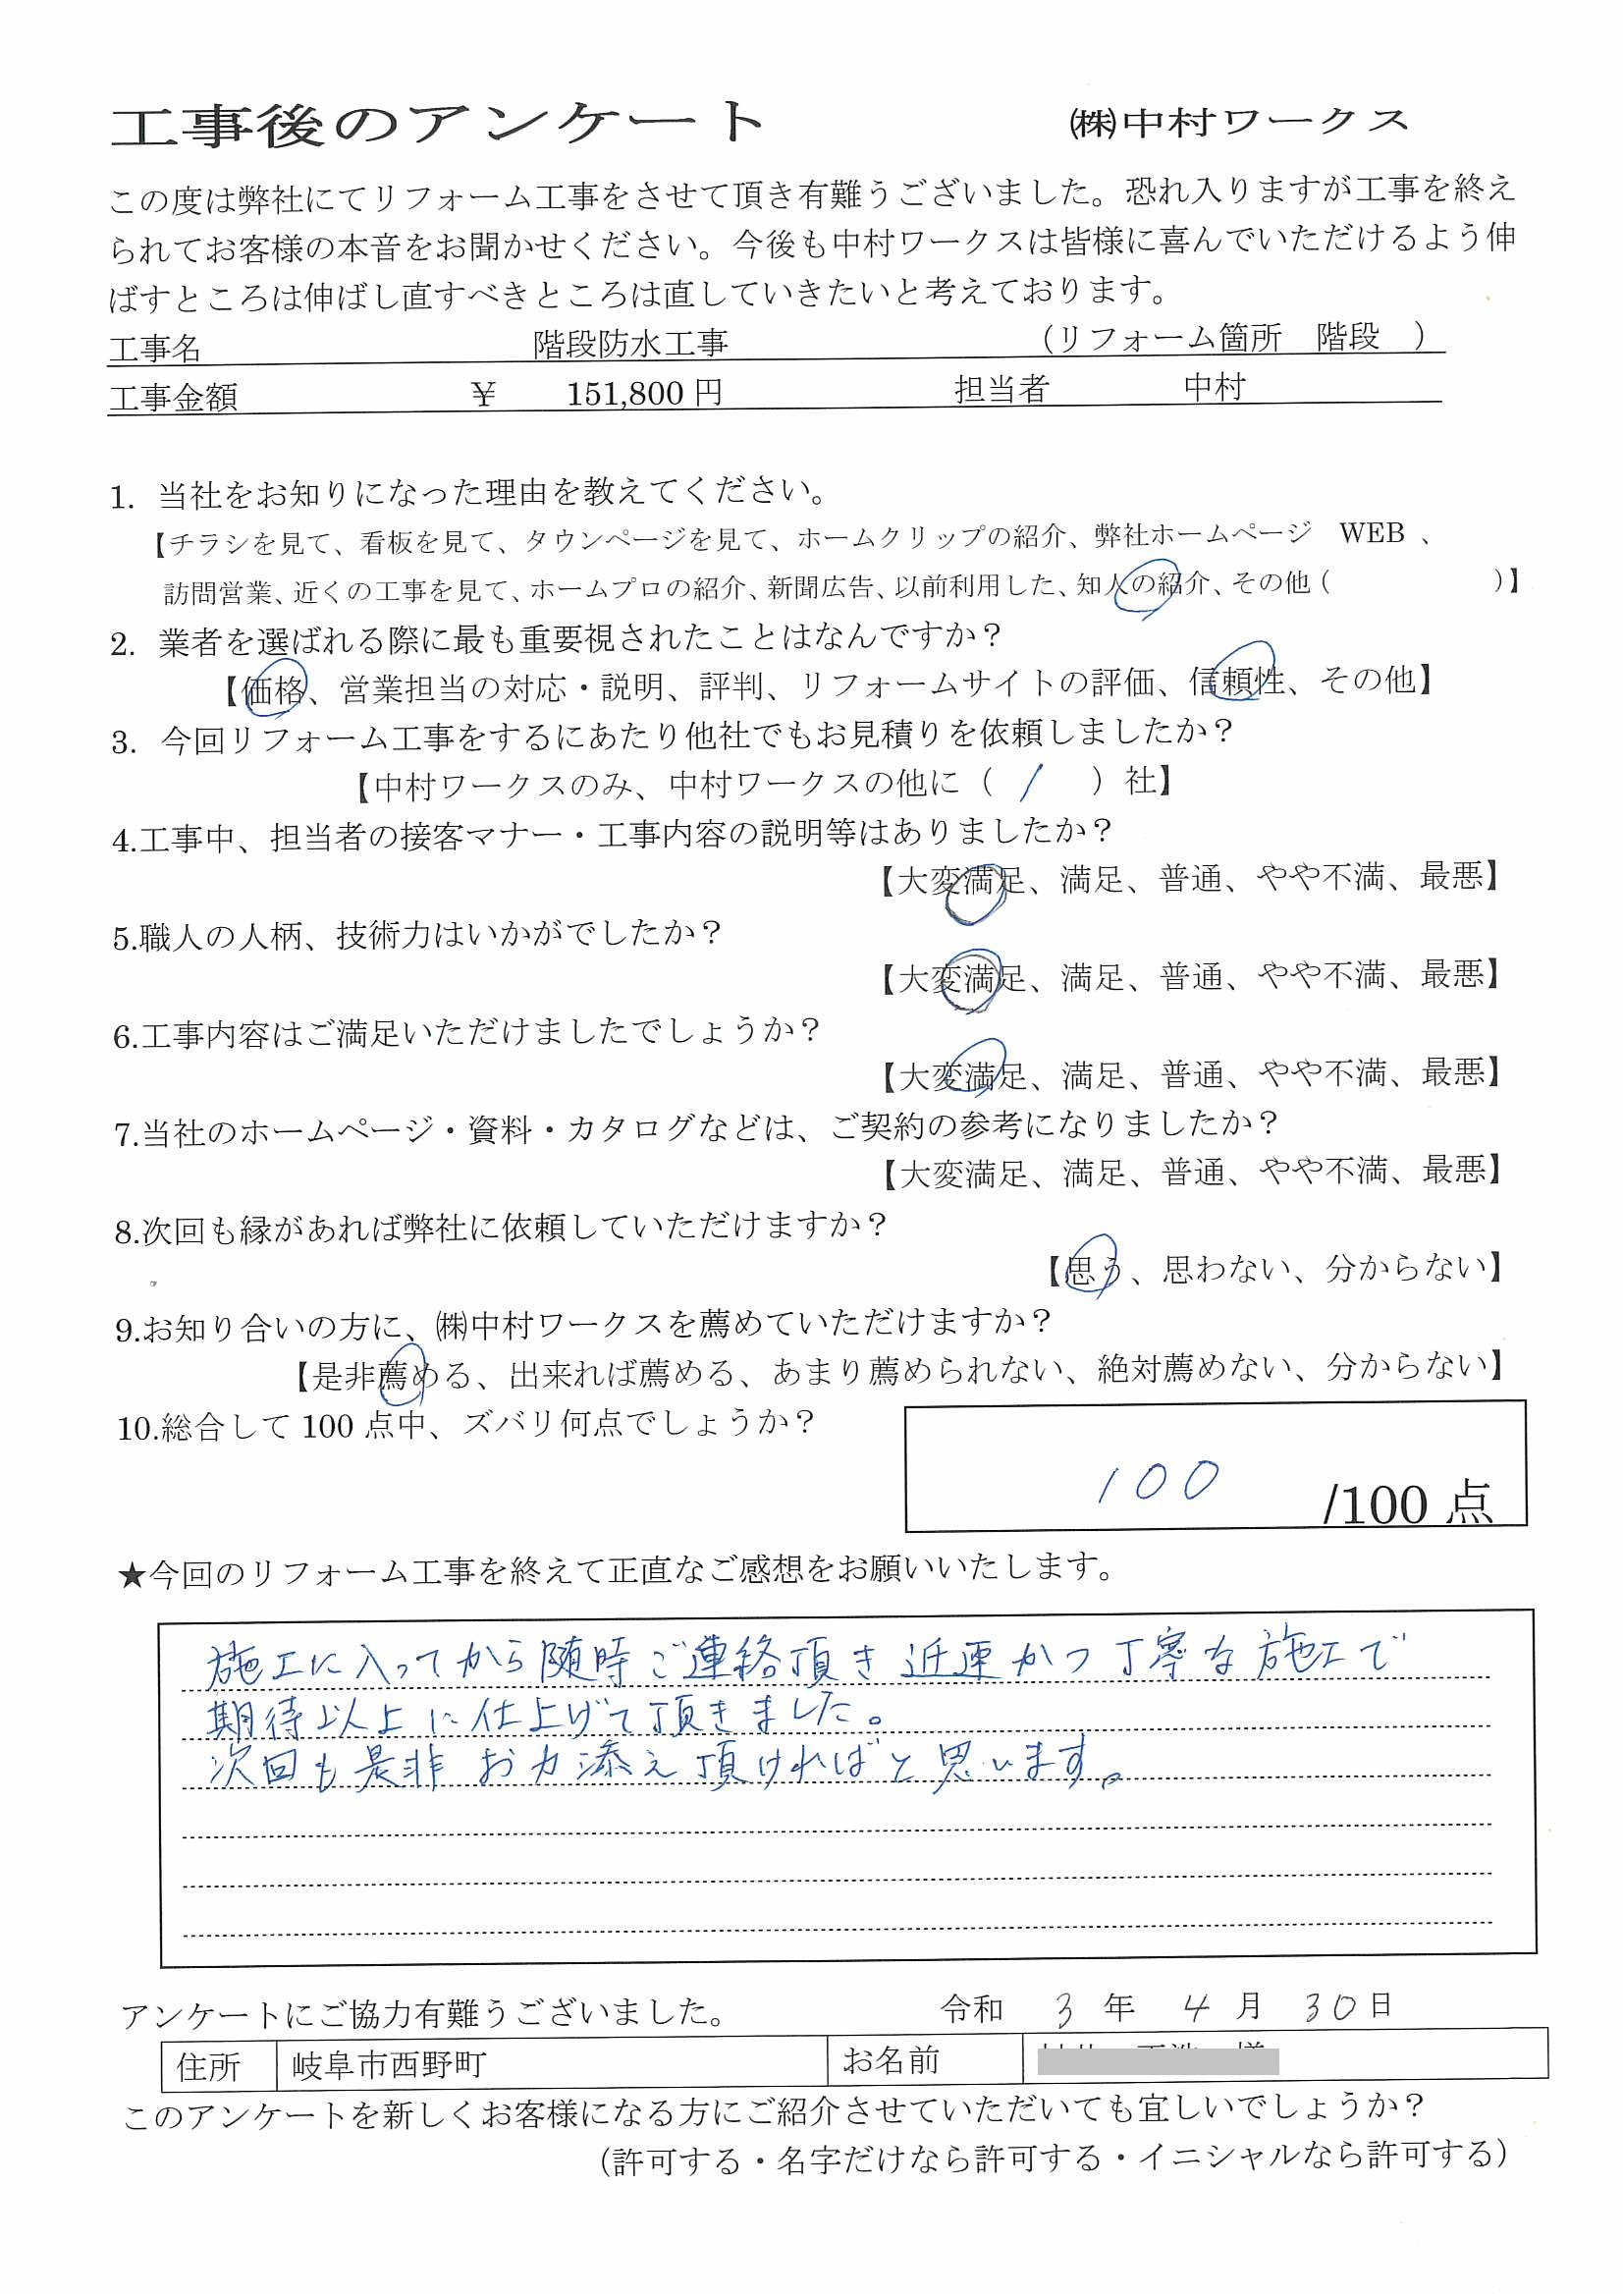 工事後のアンケート　㈱中村ワークス
この度は弊社にてリフォーム工事をさせて頂き有難うございました。恐れ入りますが工事を終え
られてお客様の本音をお聞かせください。今後も中村ワークスは皆様に喜んでいただけるよう伸
ばすところは伸ばし直すべきところは直していきたいと考えております。
工事名　階段防水工事　（リフォーム箇所　階段　）
工事金額　￥　151,800 円　担当者　中村
1. 当社をお知りになった理由を教えてください。
【チラシを見て、看板を見て、タウンページを見て、ホームクリップの紹介、弊社ホームページ　WEB 、
訪問営業、近くの工事を見て、ホームプロの紹介、新聞広告、以前利用した、知人の紹介、その他（　　　）】
2. 業者を選ばれる際に最も重要視されたことはなんですか？
【価格、営業担当の対応・説明、評判、リフォームサイトの評価、信頼性、その他】
3. 今回リフォーム工事をするにあたり他社でもお見積りを依頼しましたか？
【中村ワークスのみ、中村ワークスの他に（ / ）社】
4.工事中、担当者の接客マナー・工事内容の説明等はありましたか？
【大変満足、満足、普通、やや不満、最悪】
5.職人の人柄、技術力はいかがでしたか？
【大変満足、満足、普通、やや不満、最悪】
6.工事内容はご満足いただけましたでしょうか？
【大変満足、満足、普通、やや不満、最悪】
7.当社のホームページ・資料・カタログなどは、ご契約の参考になりましたか？
【大変満足、満足、普通、やや不満、最悪】
8.次回も縁があれば弊社に依頼していただけますか？
【思う、思わない、分からない】
9.お知り合いの方に、㈱中村ワークスを薦めていただけますか？
【是非薦める、出来れば薦める、あまり薦められない、絶対薦めない、分からない】
10.総合して 100 点中、ズバリ何点でしょうか？
100 /100 点
★今回のリフォーム工事を終えて正直なご感想をお願いいたします。
施工に入ってから随時ご連絡頂き 近速かつ丁寧な施工で
期待以上に仕上げて頂きました。
次回も是非 お力添え頂ければと思います。
アンケートにご協力有難うございました。　令和 3 年 4 月 30 日
住所　岐阜市西野町　お名前
このアンケートを新しくお客様になる方にご紹介させていただいても宜しいでしょうか？
（許可する・名字だけなら許可する・イニシャルなら許可する）